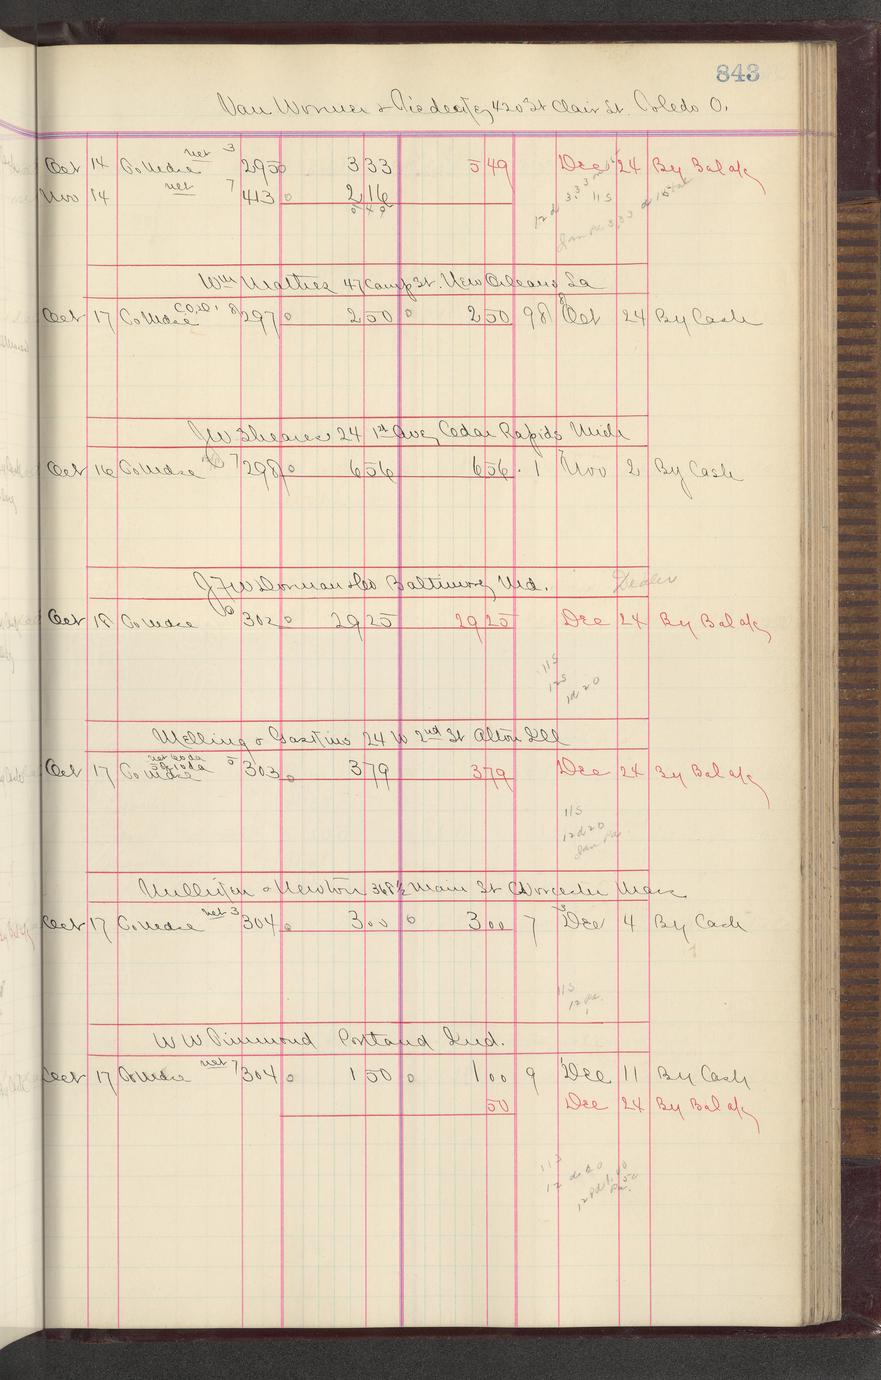 843
Van Wormer & 420 St Clair St. Toledo O.
Oct 14 To Mdse net 3 295 333 549 Dec 24 By Bal a/c
Nov 14 net 7 413 216
549
115
Wm Mather 47 Camp St. New Orleans La
Oct 17 To Mdse C.O.D. 8 297 250 250 98 Oct 24 By Cash
J W Shearer 24 1st Ave Cedar Rapids Mich
Oct 16 To Mdse 7 298 656 656 1 Nov 2 By Cash
J F W Dorman & Co Baltimore Md. Dealer
Oct 18 To Mdse 302 29 25 29 25 Dec 24 By Bal a/c
115
125
1d 20
Melling & Gastins 24 W 2nd St Alton Ill
Oct 17 To Mdse net 60 da 5% 10 da 5 303 379 379 Dec 24 By Bal a/c
115
12 d 20
Milligan & Newton 368½ Main St Worcester Mass
Oct 17 To Mdse net 3 304 300 300 7 Dec 4 By Cash
115
W W Timmond Portland Ind.
Oct 17 To Mdse net 7 304 150 100 9 Dec 11 By Cash
50 Dec 24 By Bal a/c
113